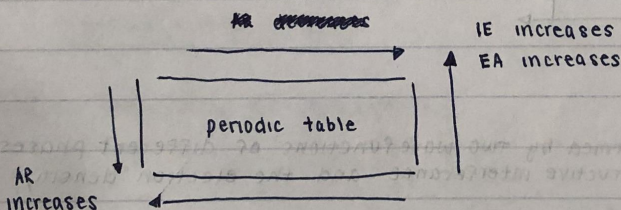 IE increases
EA increases
periodic table
AR
increases